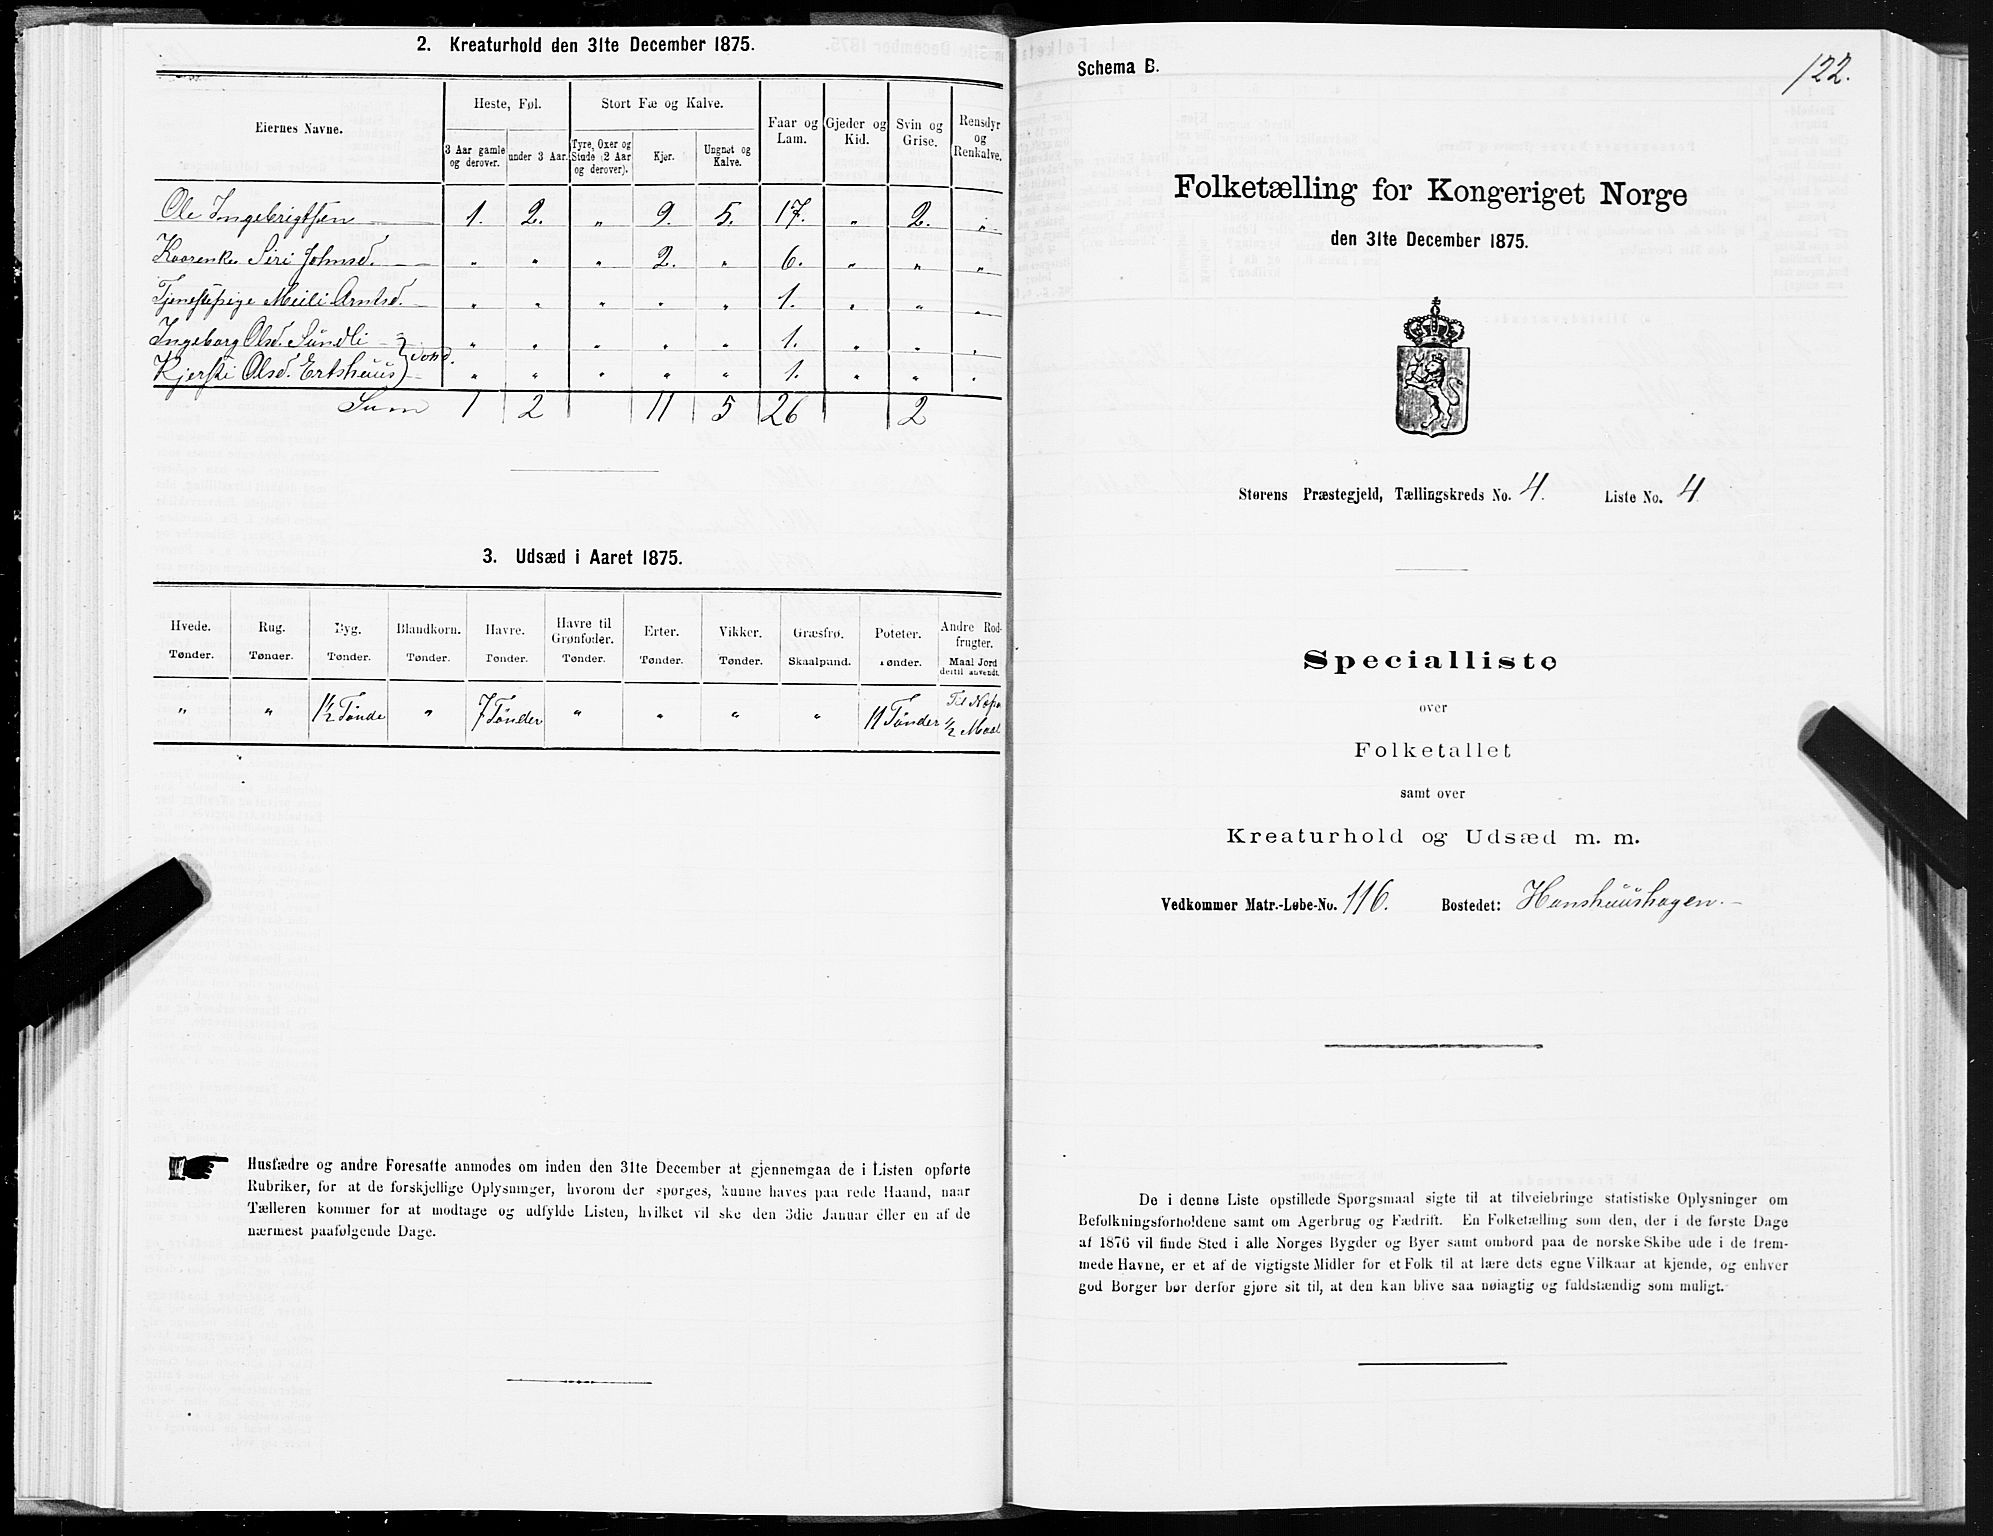 2. Kreaturhold den 31te December 1875.
Eiernes Navne.
Heste, Føl.
3 Aar gamle og derover.
under 3 Aar.
Stort Fæ og Kalve.
Tyre, Oxer og Stude (2 Aar og derover).
Kjør.
Ungnøt og Kalve.
Faar og Lam.
Gjeder og Kid.
Svin og Grise.
Rensdyr og Renkalve.
Ole Ingebrigtsen 1. 2. " 9. 5. 17. " 2. "
Kaarenke Siri Johnsd. " " " 2. " 6. " " "
Tjenestpige Meili Arntsd. " " " " " 1. " " "
Ingeborg Olsd. Sundli " " " " " 1. " " "
Kjersti Olsd. Ertshuus " " " " " 1. " " "
Sum 1 2 11 5 26 2
3. Udsæd i Aaret 1875.
Hvede. Rug. Byg. Blandkorn. Havre. Havre til Grønfoder. Erter. Vikker. Græsfrø. Poteter. Andre Rodfrugter.
Tønder. Tønder. Tønder. Tønder. Tønder. Tønder. Tønder. Tønder. Skaalpund. Tønder. Maal Jord dertil anvendt.
" " 1½ Tønde " 7 Tønder " " " " 11 Tønder Til Næpe ½ Maal
Husfædre og andre Foresatte anmodes om inden den 31te December at gjennemgaa de i Listen opførte
Rubriker, for at de forskjellige Oplysninger, hvorom der spørges, kunne haves paa rede Haand, naar
Tælleren kommer for at modtage og udfylde Listen, hvilket vil ske den 3die Januar eller en af de
nærmest paafølgende Dage.
122.
Schema B.
Folketælling for Kongeriget Norge
den 31te December 1875.
Størens Præstegjeld, Tællingskreds No. 4. Liste No. 4
Specialliste
over
Folketallet
samt over
Kreaturhold og Udsæd m. m.
Vedkommer Matr.-Løbe-No. 116. Bostedet: Hanshuushagen.
De i denne Liste opstillede Spørgsmaal sigte til at tilveiebringe statistiske Oplysninger om
Befolkningsforholdene samt om Agerbrug og Fædrift. En Folketælling som den, der i de første Dage
af 1876 vil finde Sted i alle Norges Bygder og Byer samt ombord paa de norske Skibe ude i de frem-
mede Havne, er et af de vigtigste Midler for et Folk til at lære dets egne Vilkaar at kjende, og enhver
god Borger bør derfor gjøre sit til, at den kan blive saa nøiagtig og fuldstændig som muligt.